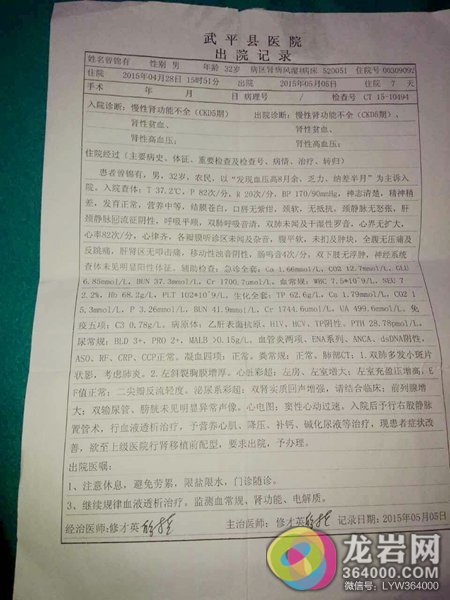 武平县医院
出院记录
姓名曾锦有 性别 男 年龄 32岁 病区肾病风湿科病床 520051 住院号 00309092
住院 2015年04月28日 15时51分 出院 2015年05月05日 住院 7 天
手术 年 月 日 病理号/ 检查号 CT 15-10494
入院诊断:慢性肾功能不全(CKD5期) 出院诊断:慢性肾功能不全(CKD5期),
肾性贫血、 肾性贫血、
肾性高血压; 肾性高血压;
住院经过(主要病史、体征、重要检查及检查号、病情、治疗、转归)
患者曾锦有,男,32岁,农民,以“发现血压高8月余,乏力、纳差半月”为主诉入
入院。入院查体:T 37.2℃,P 82次/分,R 20次/分,BP 170/90mmHg,神志清楚,精神稍
差,发育正常,营养中等,结膜苍白,口唇无紫绀,颈软,无抵抗,颈静脉无怒张,肝
颈静脉回流征阴性,呼吸平顺,双肺呼吸音清,双肺未闻及干湿性罗音,心界无扩大,
心率82次/分,心律齐,各瓣膜听诊区未闻及杂音,腹平软,未扪及肿块,全腹无压痛及
反跳痛,肝肾区无叩击痛,移动性浊音阴性,肠鸣音4次/分;双下肢无浮肿,神经系统
查体未见明显阳性体征。辅助检查:急诊全套:Ca 1.66mmol/L,CO2 12.7mmol/L,GLU
6.85mmol/L,BUN 37.3mmol/L,Cr 1700.7umol/L,血常规:WBC 7.5*10^9/L,NEU 7
2.2%,Hb 68.2g/L,PLT 102*10^9/L,生化全套:TP 62.6g/L,Ca 1.79mmol/L,CO2 1
5.3mmol/L,P 3.26mmol/L,BUN 41.9mmol/L,Cr 1744.6umol/L,UA 499.6umol/L,免
疫五项:C3 0.78g/L,病原体:乙肝表面抗原、HIV、HCV、TP阴性。PTH 28.78pmol/L,
尿常规:BLD 3+,PRO 2+,MALB >0.15g/L,血管炎两项、ENA系列、ANCA、dsDNA阴性,
ASO、RF、CRP、CCP正常。凝血四项:正常。粪常规:正常。肺部CT:1.双肺多发小斑片
状影,考虑肺炎。2.左斜裂胸膜增厚。心脏彩超:左房、左室增大;左室充盈正增高,E
F值正常;二尖瓣反流轻度。泌尿系彩超:双肾实质回声增强,请结合临床;前列腺增
大;双输尿管、膀胱未见明显异常声像。心电图:窦性心动过速。入院后予行右股静脉
置管术,行血液透析治疗,予营养心肌、降压、补钙、碱化尿液等治疗,现患者症状改
善,欲至上级医院行肾移植前配型,要求出院,予办理。
出院医嘱:
1、注意休息,避免劳累,限盐限水,门诊随诊。
3、继续规律血液透析治疗。监测血常规、肾功能、电解质。
经治医师:修才英 主治医师:修才英 记录日期:2015年05月05日
龙岩网
364000.COM
微信号:LYW364000